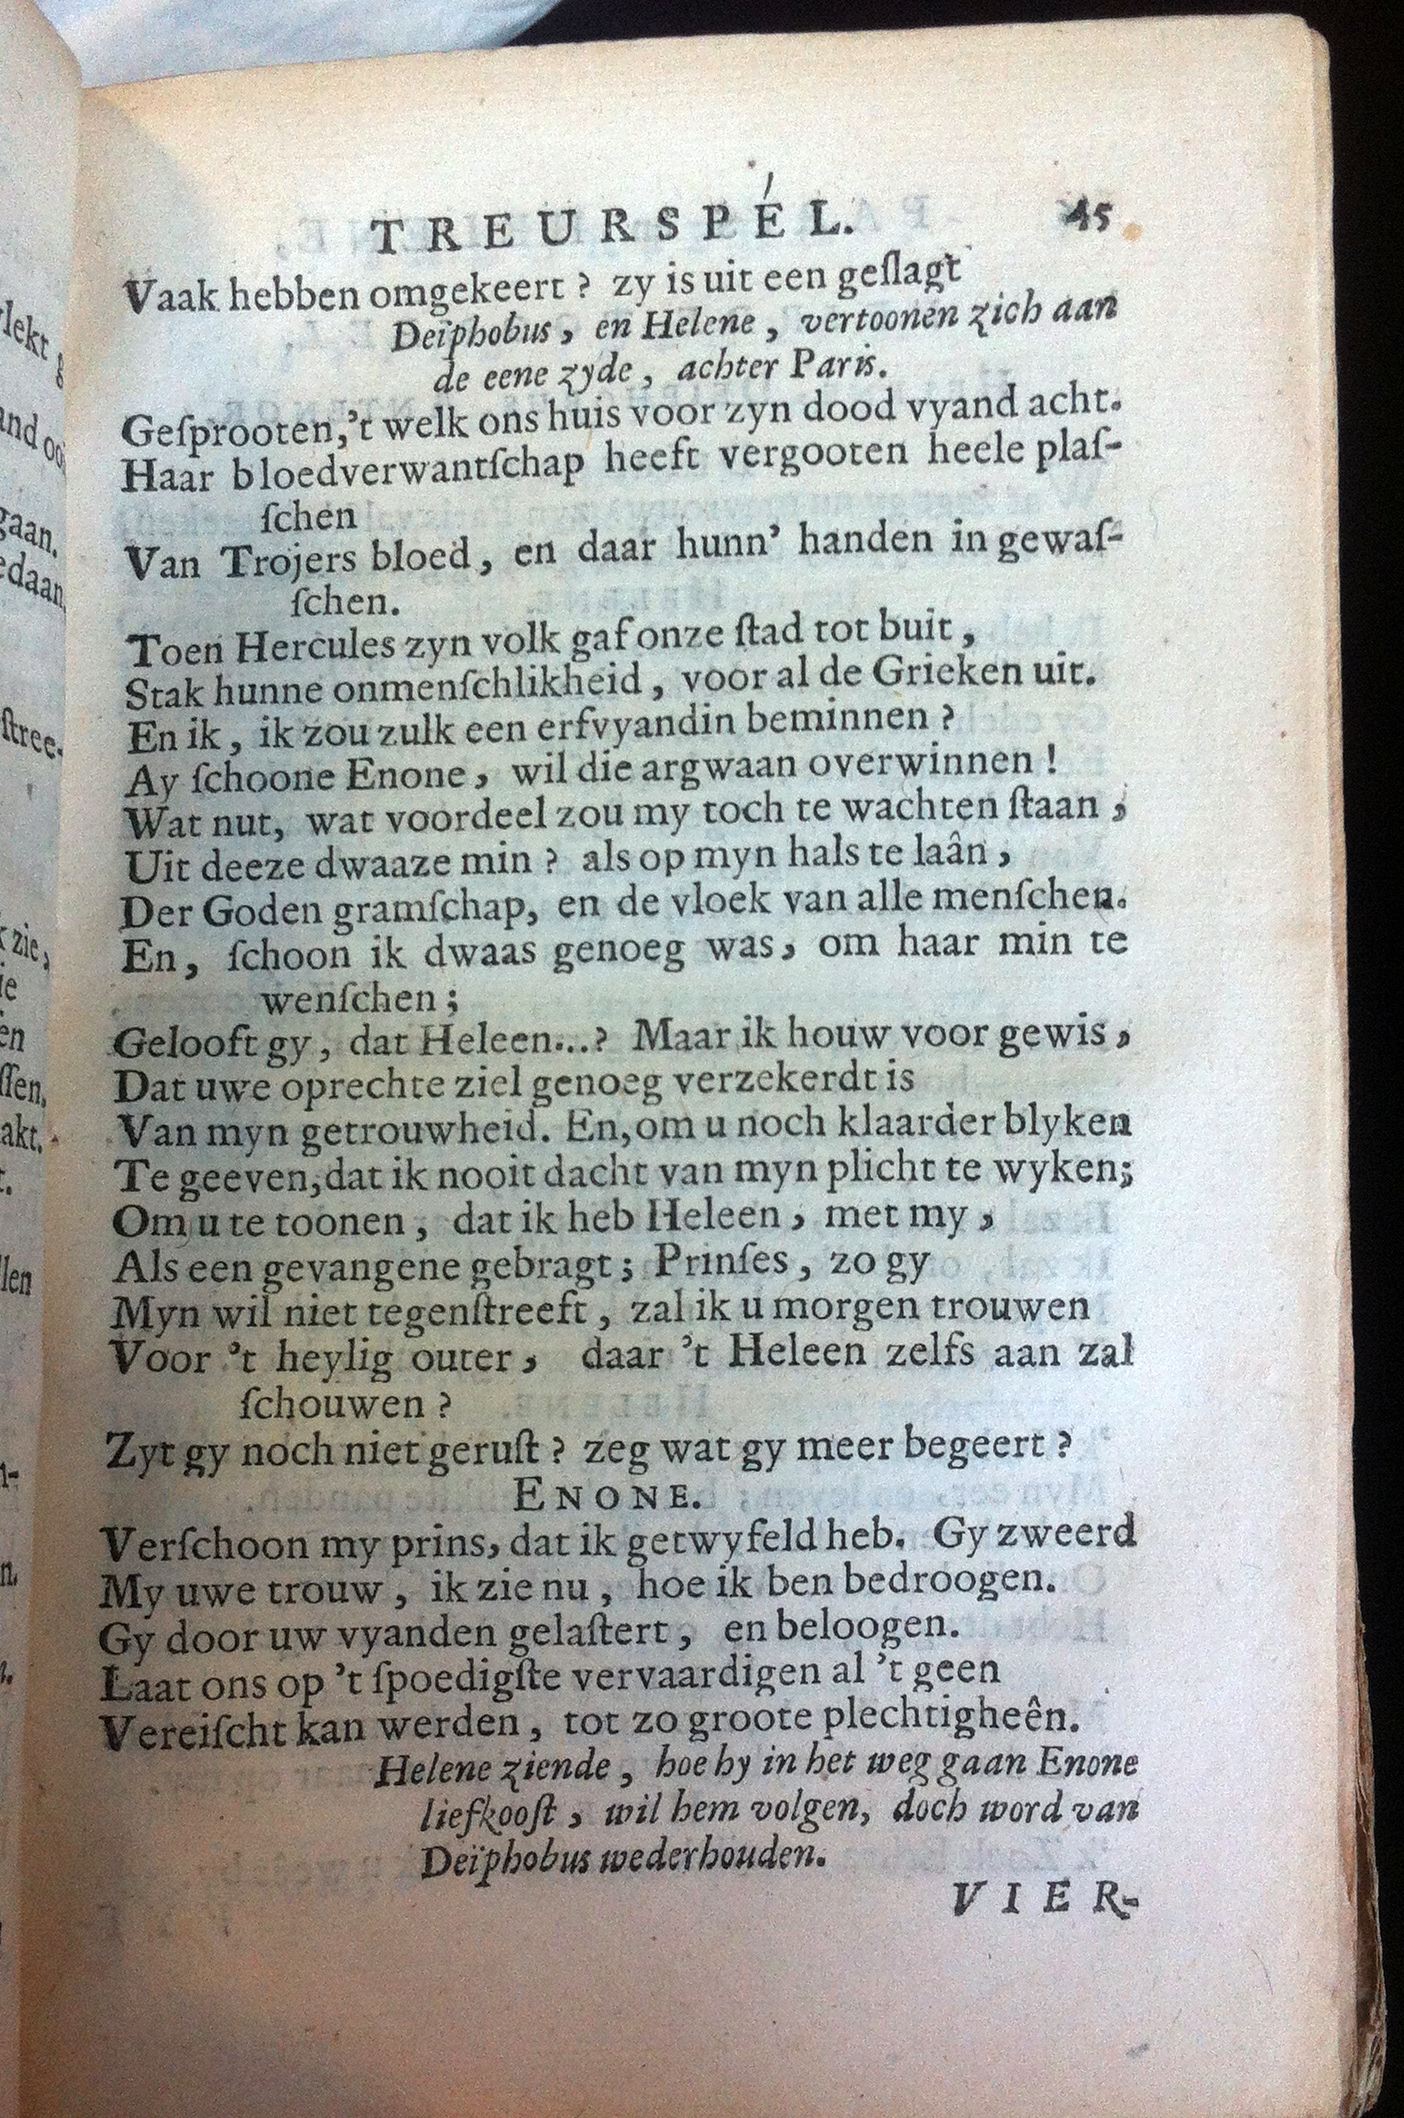 TREURSPÉL. 45
Vaak hebben omgekeert? zy is uit een geſlagt
Deïphobus, en Helene, vertoonen zich aan
de eene zyde, achter Paris.
Geſprooten, 't welk ons huis voor zyn dood vyand acht.
Haar bloedverwantſchap heeft vergooten heele plaſ-
ſchen
Van Trojers bloed, en daar hunn' handen in gewaſ-
ſchen.
Toen Hercules zyn volk gaf onze ſtad tot buit,
Stak hunne onmenſchlikheid, voor al de Grieken uit.
En ik, ik zou zulk een erfvyandin beminnen?
Ay ſchoone Enone, wil die argwaan overwinnen!
Wat nut, wat voordeel zou my toch te wachten ſtaan,
Uit deeze dwaaze min? als op myn hals te laân,
Der Goden gramſchap, en de vloek van alle menſchen.
En, ſchoon ik dwaas genoeg was, om haar min te
wenſchen;
Gelooft gy, dat Heleen...? Maar ik houw voor gewis,
Dat uwe oprechte ziel genoeg verzekerdt is
Van myn getrouwheid. En, om u noch klaarder blyken
Te geeven, dat ik nooit dacht van myn plicht te wyken;
Om u te toonen, dat ik heb Heleen, met my,
Als een gevangene gebragt; Prinſes, zo gy
Myn wil niet tegenſtreeft, zal ik u morgen trouwen
Voor 't heylig outer, daar 't Heleen zelfs aan zal
ſchouwen?
Zyt gy noch niet geruſt? zeg wat gy meer begeert?
ENONE.
Verſchoon my prins, dat ik getwyfeld heb. Gy zweerd
My uwe trouw, ik zie nu, hoe ik ben bedroogen.
Gy door uw vyanden gelaſtert, en beloogen.
Laat ons op 't ſpoedigſte vervaardigen al 't geen
Vereiſcht kan werden, tot zo groote plechtigheên.
Helene ziende, hoe hy in het weg gaan Enone
liefkooſt, wil hem volgen, doch word van
Deïphobus wederhouden.
VIER-